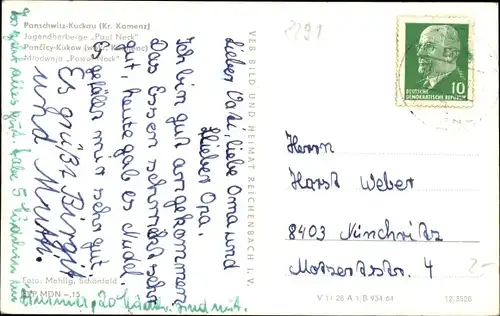 Panschwitz-Kuckau (Kr. Kamenz)
Jugendherberge „Paul Neck"
Pančicy-Kukow (wokr. Kamjenc)
Młodownja „Pawoł Neck"
2291
VEB BILD UND HEIMAT REICHENBACH I. V.
10
DEUTSCHE
DEMOKRATISCHE REPUBLIK
Lieber Vati, liebe Oma und
lieber Opa.
Ich bin gut angekommen
Das Essen schmeckt sehr
gut, heute gab es Nudel.
Es gefällt mir sehr gut.
Es grüßt Birgit
und Mutti.
Herrn
Horst Weber
8403 Nünchritz
Mozartstr. 4
2-
Foto: Mehlig, Schönfeld
EVP MDN –.15
V 11 28 A 1 B 934/64
12/3528